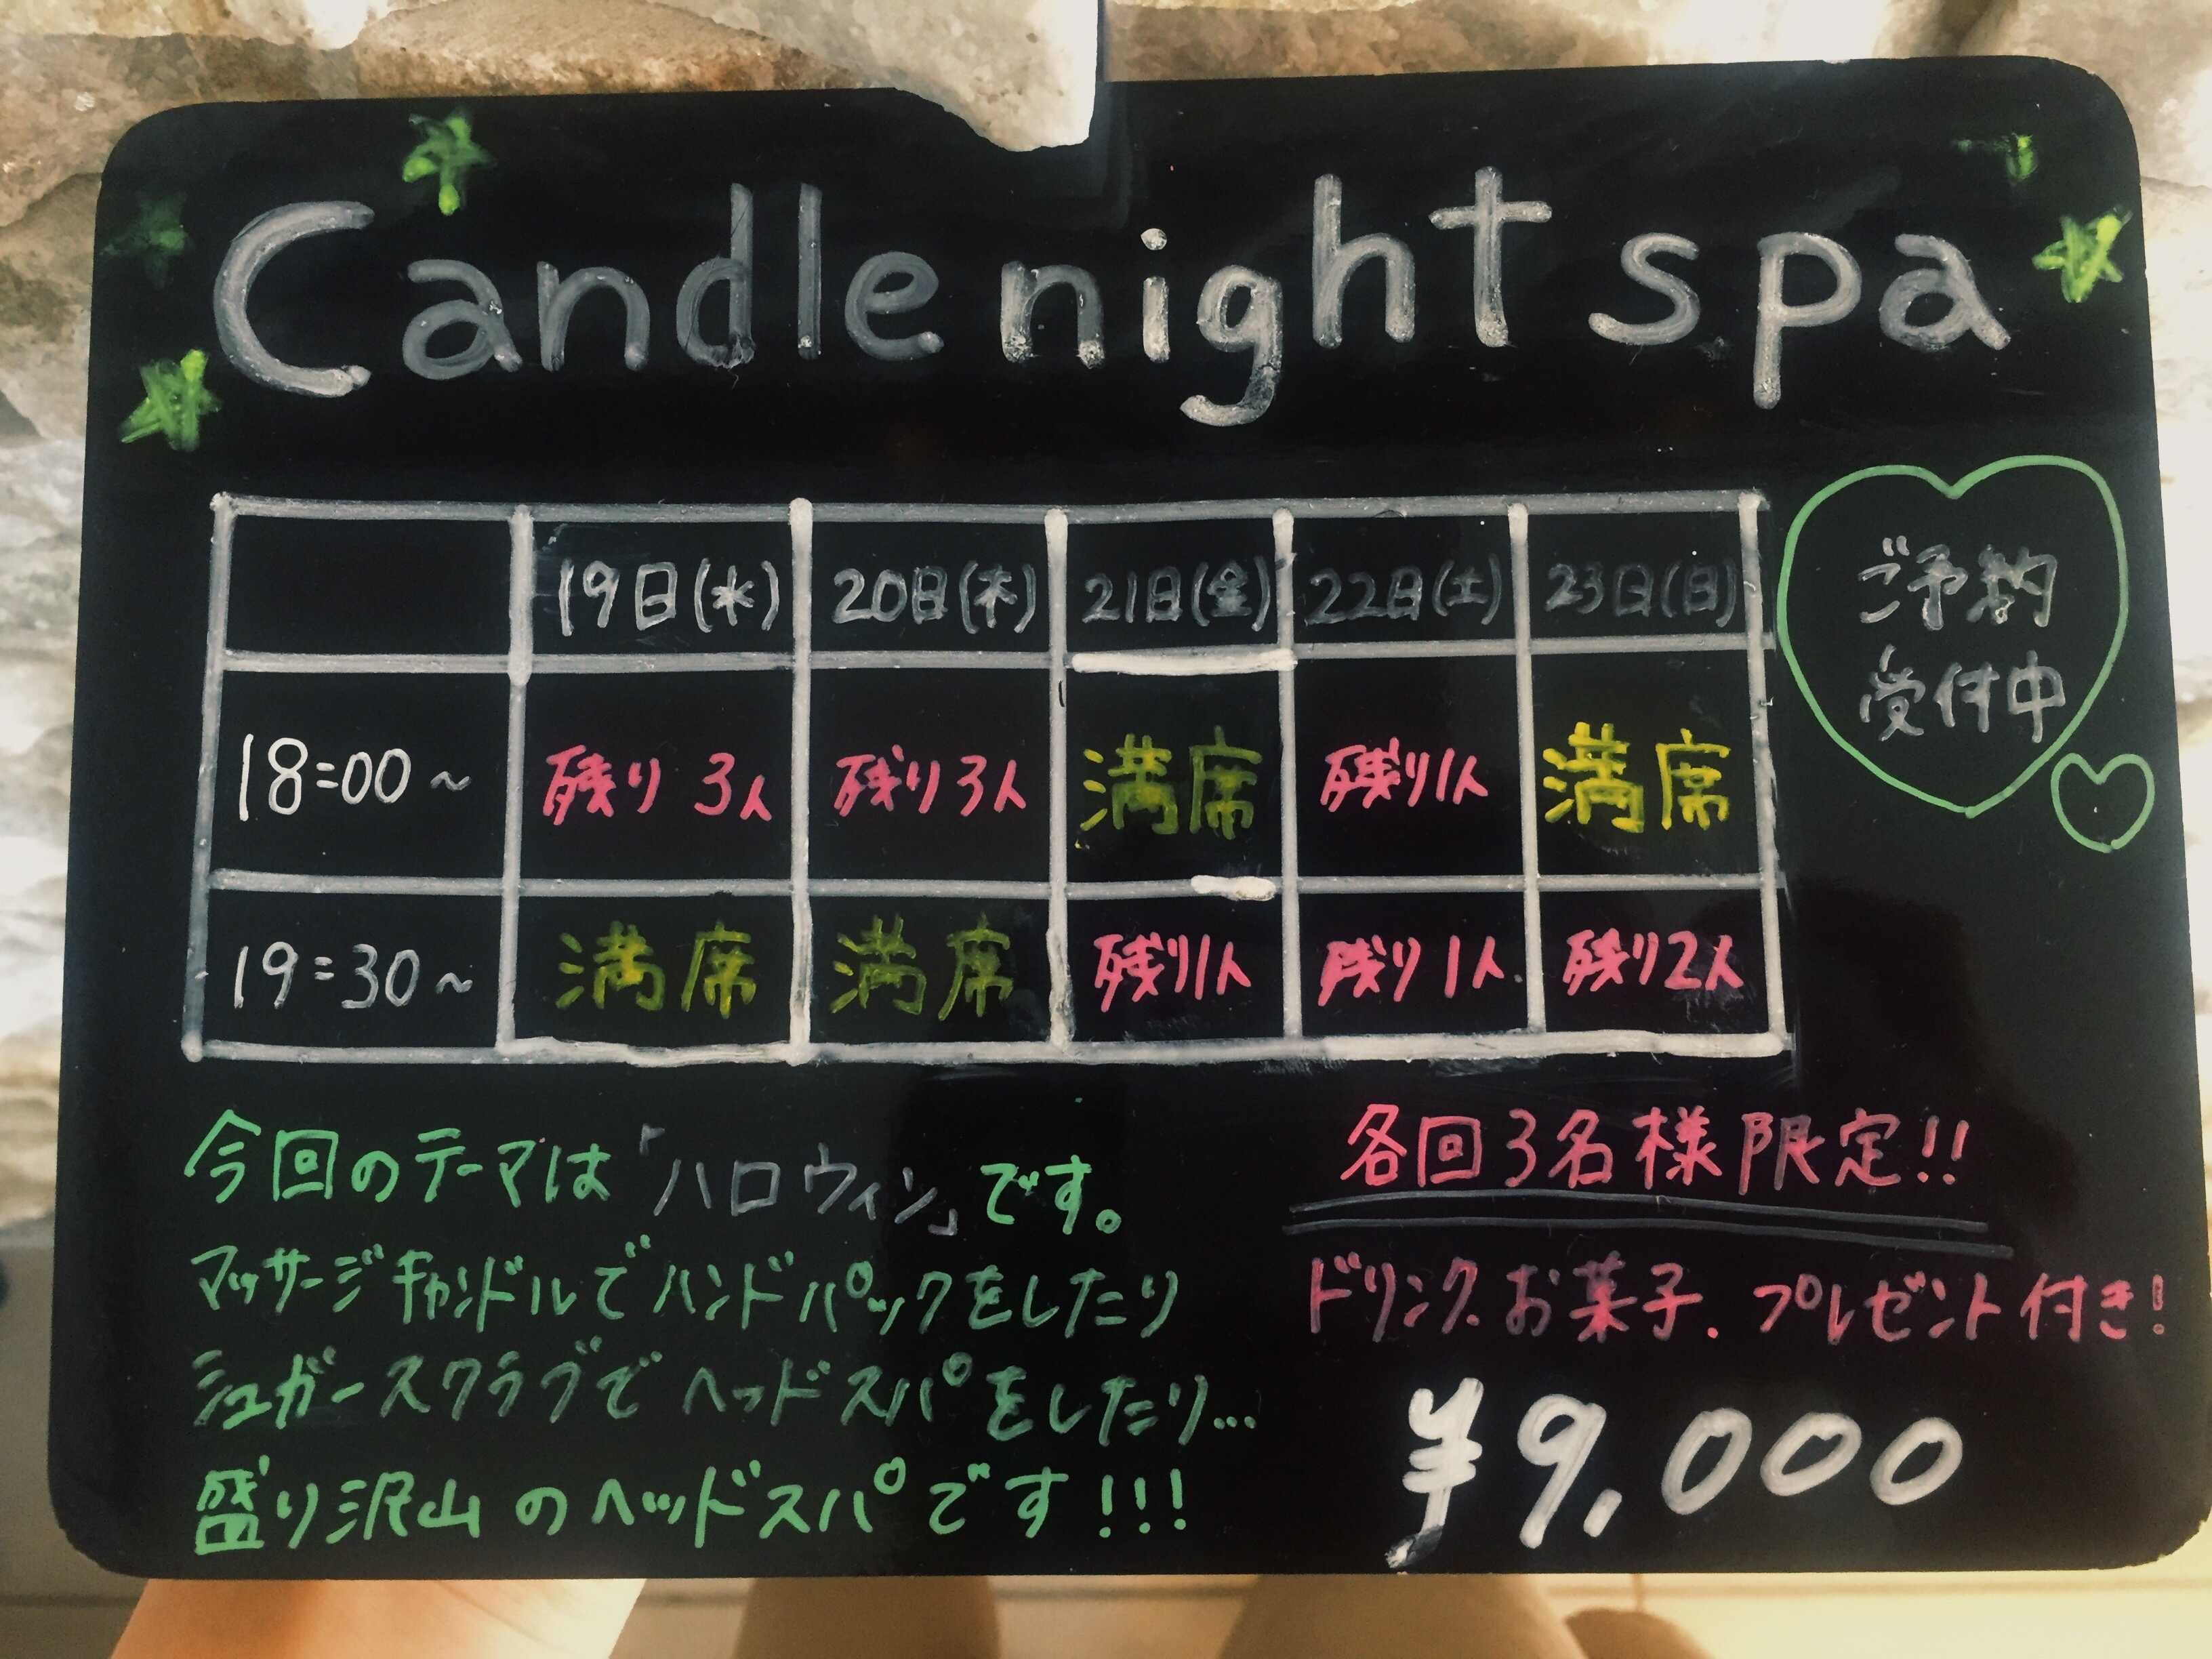 Candle night spa
19日(水) 20日(木) 21日(金) 22日(土) 23日(日)
18:00~ 残り3人 残り3人 満席 残り1人 満席
19:30~ 満席 満席 残り1人 残り1人 残り2人
ご予約
受付中
今回のテーマは「ハロウィン」です。
マッサージキャンドルでハンドパックをしたり
シュガースクラブでヘッドスパをしたり...
盛り沢山のヘッドスパです!!!
各回3名様限定!!
ドリンク.お菓子.プレゼント付き!
¥9,000